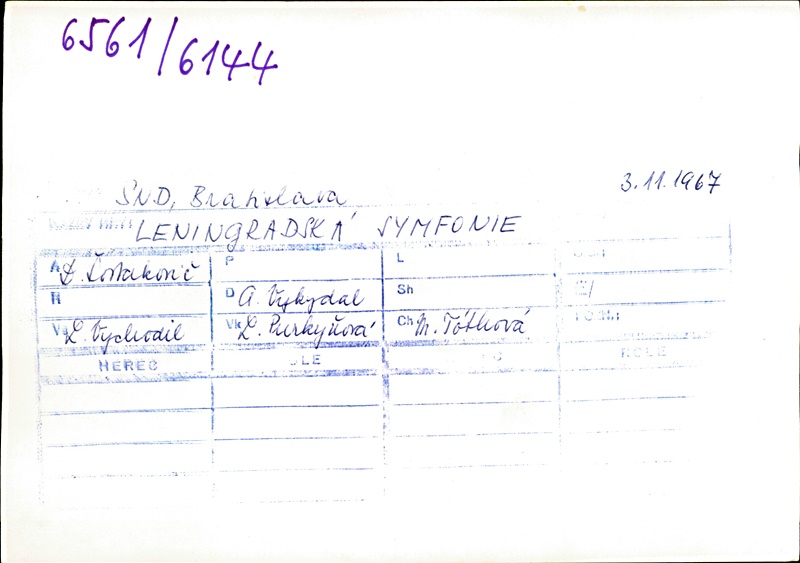 6561/6144
3.11.1967
SND, Bratislava
LENINGRADSKÁ SYMFONIE
A D. Šostakovič P L
R D A. Vykydal Sh
V L. Vychodil Vk L. Purkyňová Ch M. Tóthová
HEREC ROLE